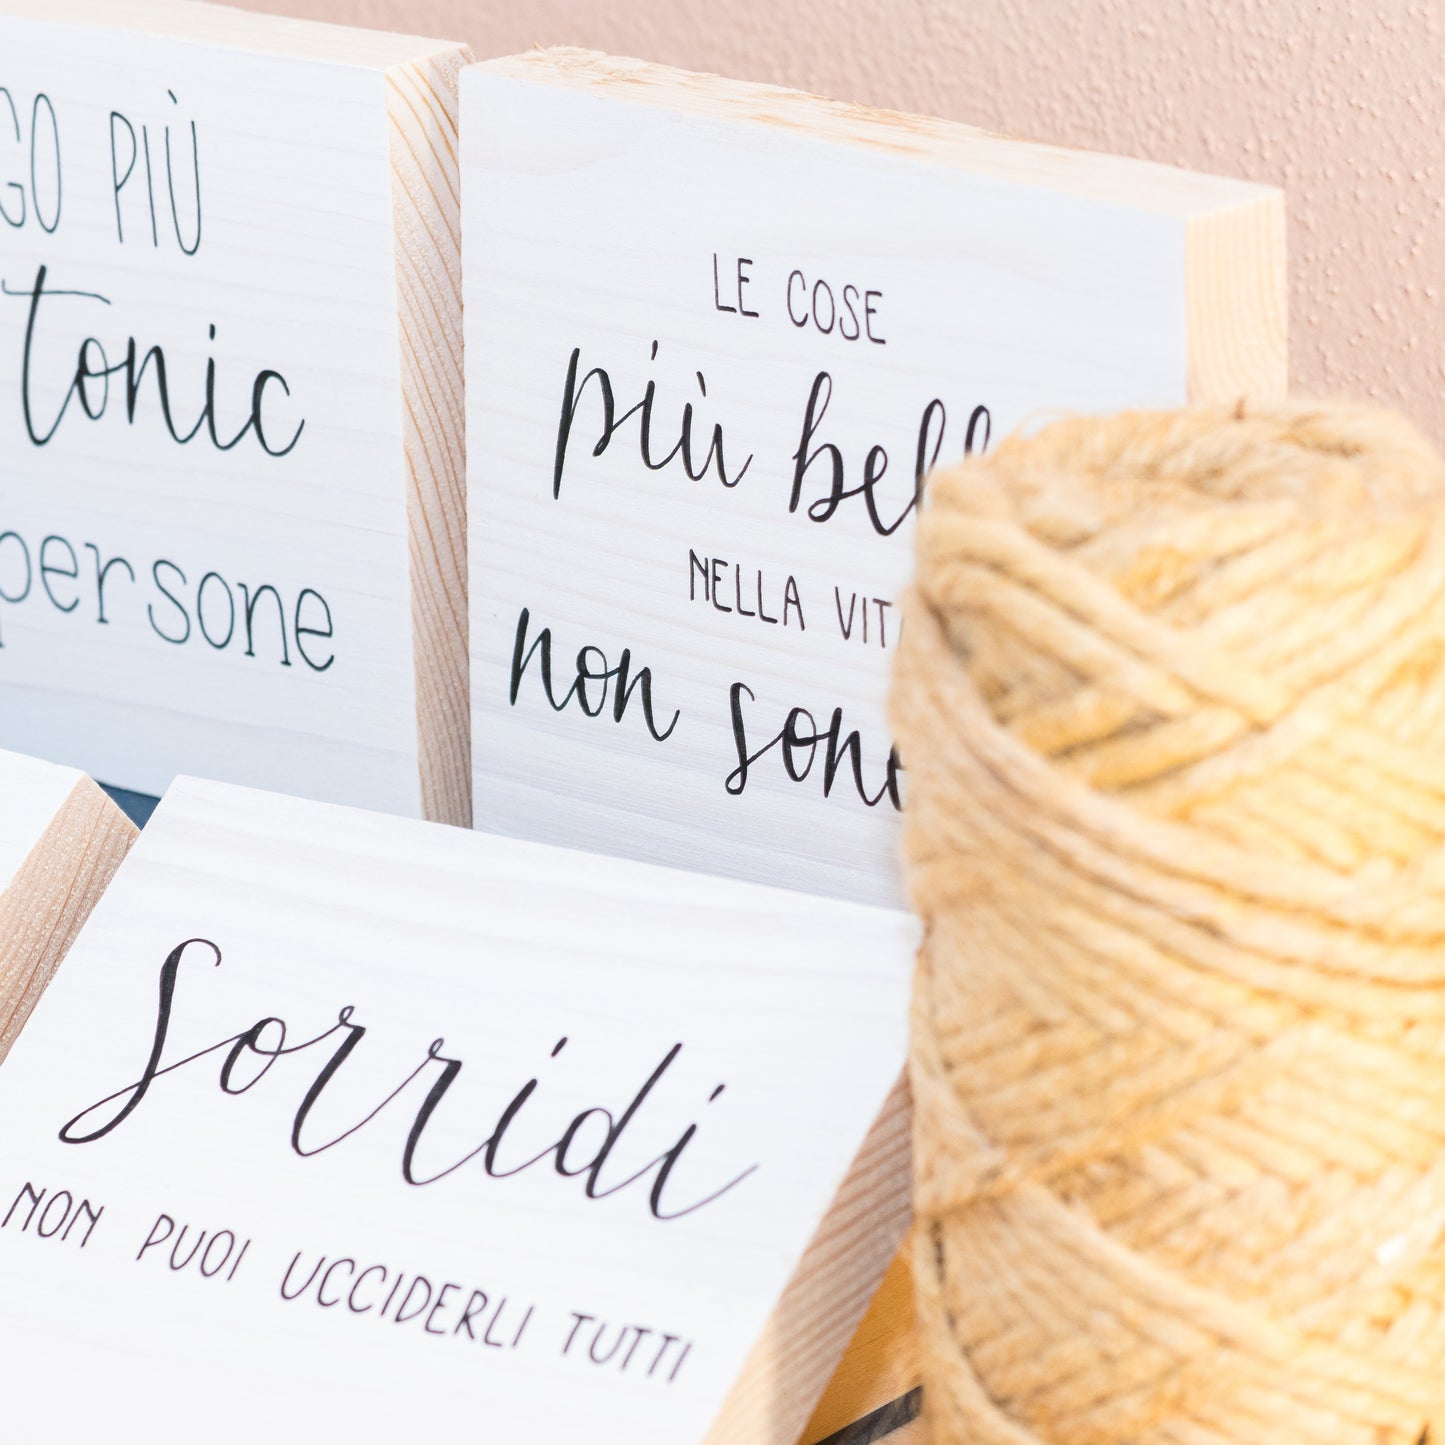 PIÙ
tonic
persone
LE COSE
più
NELLA
non
Sorridi
NON PUOI UCCIDERLI TUTTI